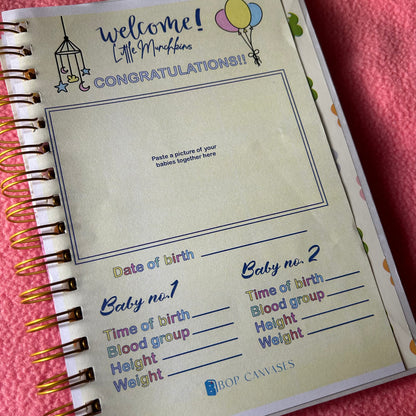 welcome!
Little Munchkins
CONGRATULATIONS!!
Paste a picture of your
babies together here
Date of birth
Baby no.1
Time of birth
Blood group
Height
Weight
Baby no. 2
Time of birth
Blood group
Height
Weight
BOP CANVASES